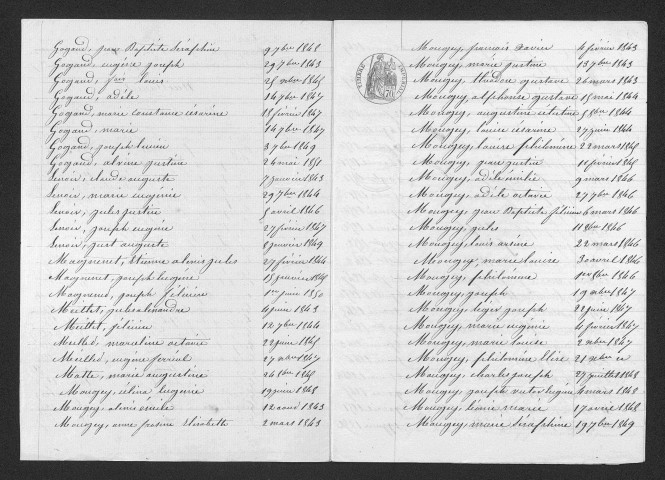 Gogand, jean Baptiste Séraphin 9 7bre 1848
Gogand, eugène joseph 29 7bre 1843
Gogand, louis 1845
Gogand, adèle 14 7bre 1847
Gogand, marie constance césarine 18 février 1847
Gogand, marie 14 7bre 1847
Gogand, joseph 3 7bre 1849
Gogand, justine 24 mai 1851
Lenoir, claude auguste 7 janvier 1843
Lenoir, marie eugénie 29 7bre 1844
Lenoir, jules justin 5 avril 1846
Lenoir, joseph eugène 27 février 1847
Lenoir, just auguste 8 janvier 1849
Magnenet, étienne alexis jules 27 février 1844
Magnenet, joseph eugène 15 janvier 1848
Magnenet, joseph félicien 1er juin 1850
Mettet, jules alexandre 4 juin 1843
Mettet, félicien 12 7bre 1844
marceline octavie 22 juin 1845
eugène 27 1847
Matte, marie augustine 24 1848
Mougey, eugénie 19 1848
Mougey, alexis émile 12 août 1843
Mougey, anne Elisabeth 2 mars 1843
Mougey, françois xavier 4 février 1843
Mougey, marie justine 13 7bre 1843
Mougey, théodore gustave 26 mars 1843
Mougey, alphonse gustave 15 mai 1844
Mougey, augustine 1844
Mougey, louise césarine 27 juin 1844
Mougey, louise philomène 22 mars 1845
Mougey, jean justin 11 février 1845
Mougey, adèle émilie 9 mars 1846
Mougey, adèle octavie 27 7bre 1846
Mougey, jean Baptiste félicien 6 mars 1846
Mougey, jules 11 8bre 1846
Mougey, louis arsène 22 mars 1846
Mougey, marie louise 30 avril 1846
Mougey, philomène 1er 8bre 1846
Mougey, joseph 19 1847
Mougey, léger joseph 22 juin 1847
Mougey, marie eugénie 4 février 1847
Mougey, marie louise 2 1847
Mougey, philomène élise 21
Mougey, charles joseph 27 juillet 1848
Mougey, joseph victor eugène 4 mars 1848
Mougey, léonie marie 17 avril 1848
Mougey, marie Séraphine 19 7bre 1849
TIMBRE IMPERIAL